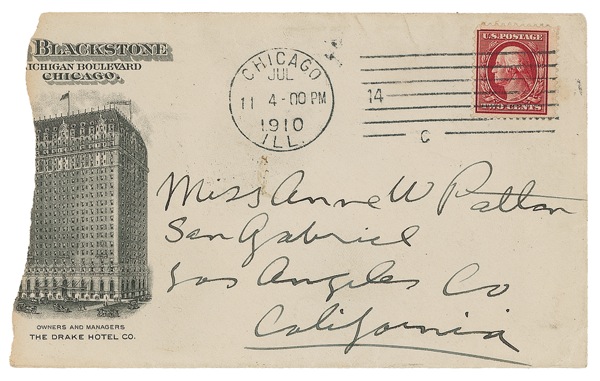 BLACKSTONE
ICHIGAN BOULEVARD
CHICAGO.
CHICAGO
JUL
11 4-00 PM
1910
ILL.
14
C
U.S. POSTAGE
CENTS
Miss Anne W Patton
San Gabriel
Los Angeles Co
California
OWNERS AND MANAGERS
THE DRAKE HOTEL CO.